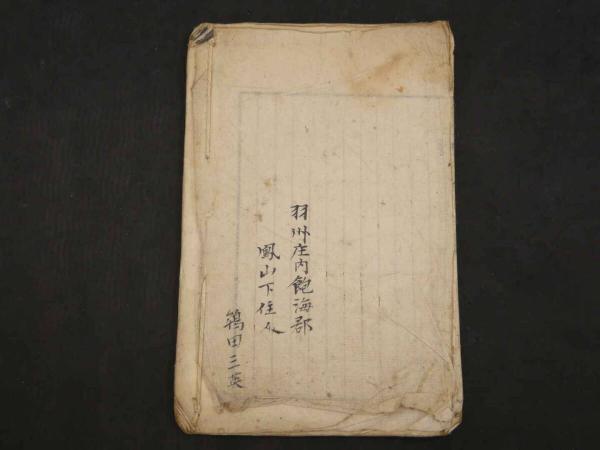 羽州庄内飽海郡
鳳山下住人
鵫田三英